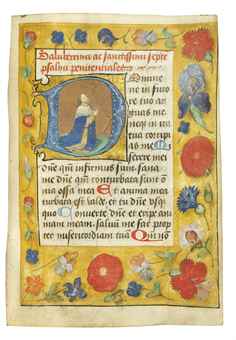 Saluberrimi ac sanctissimi septē
psalmi penitenciales
Domine
ne in furo
re tuo ar
guas me
neq; in ira
tua corripi
as me Mi
serere mei
dn̄e qm̄ infirmus sum sana
me dn̄e qm̄ conturbata sunt ō
nia ossa mea Et anima mea
turbata est valde et tu dn̄e vsq;
quo Conuerte dn̄e et eripe ani
mam meam saluū me fac prop
ter misericordiam tuā Qm̄ nō